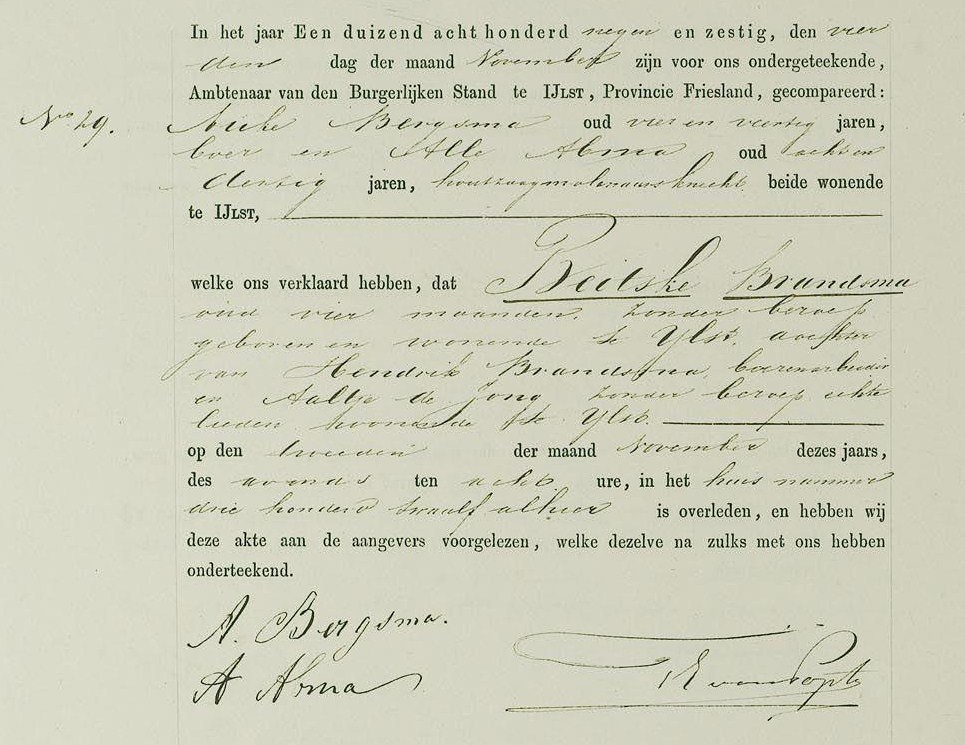 In het jaar Een duizend acht honderd negen en zestig, den vier
den dag der maand November zijn voor ons ondergeteekende,
Ambtenaar van den Burgerlijken Stand te IJlst, Provincie Friesland, gecompareerd:
No 29. Auke Bergsma oud vier en veertig jaren,
boer en Alle Abma oud acht en
dertig jaren, houtzaagmolenaarsknecht beide wonende
te IJlst,
welke ons verklaard hebben, dat Beitske Brandsma
oud vier maanden, zonder beroep
geboren en wonende te Ylst, dochter
van Hendrik Brandsma, boerenarbeider
en Aaltje de Jong zonder beroep echte
lieden wonende te Ylst.
op den tweeden der maand November dezes jaars,
des avonds ten acht ure, in het huis nummer
drie honderd twaalf alhier is overleden, en hebben wij
deze akte aan de aangevers voorgelezen, welke dezelve na zulks met ons hebben
onderteekend.
A. Bergsma.
A Abma